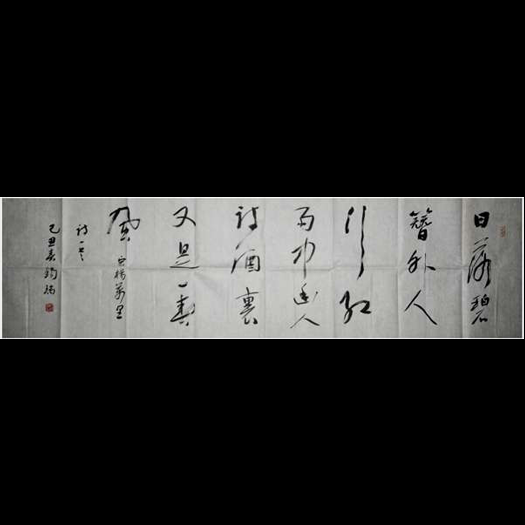 日落碧
簪外人
行紅
雨中幽人
詩酒裏
又是一春
風 楊萬里
詩一首
己丑春